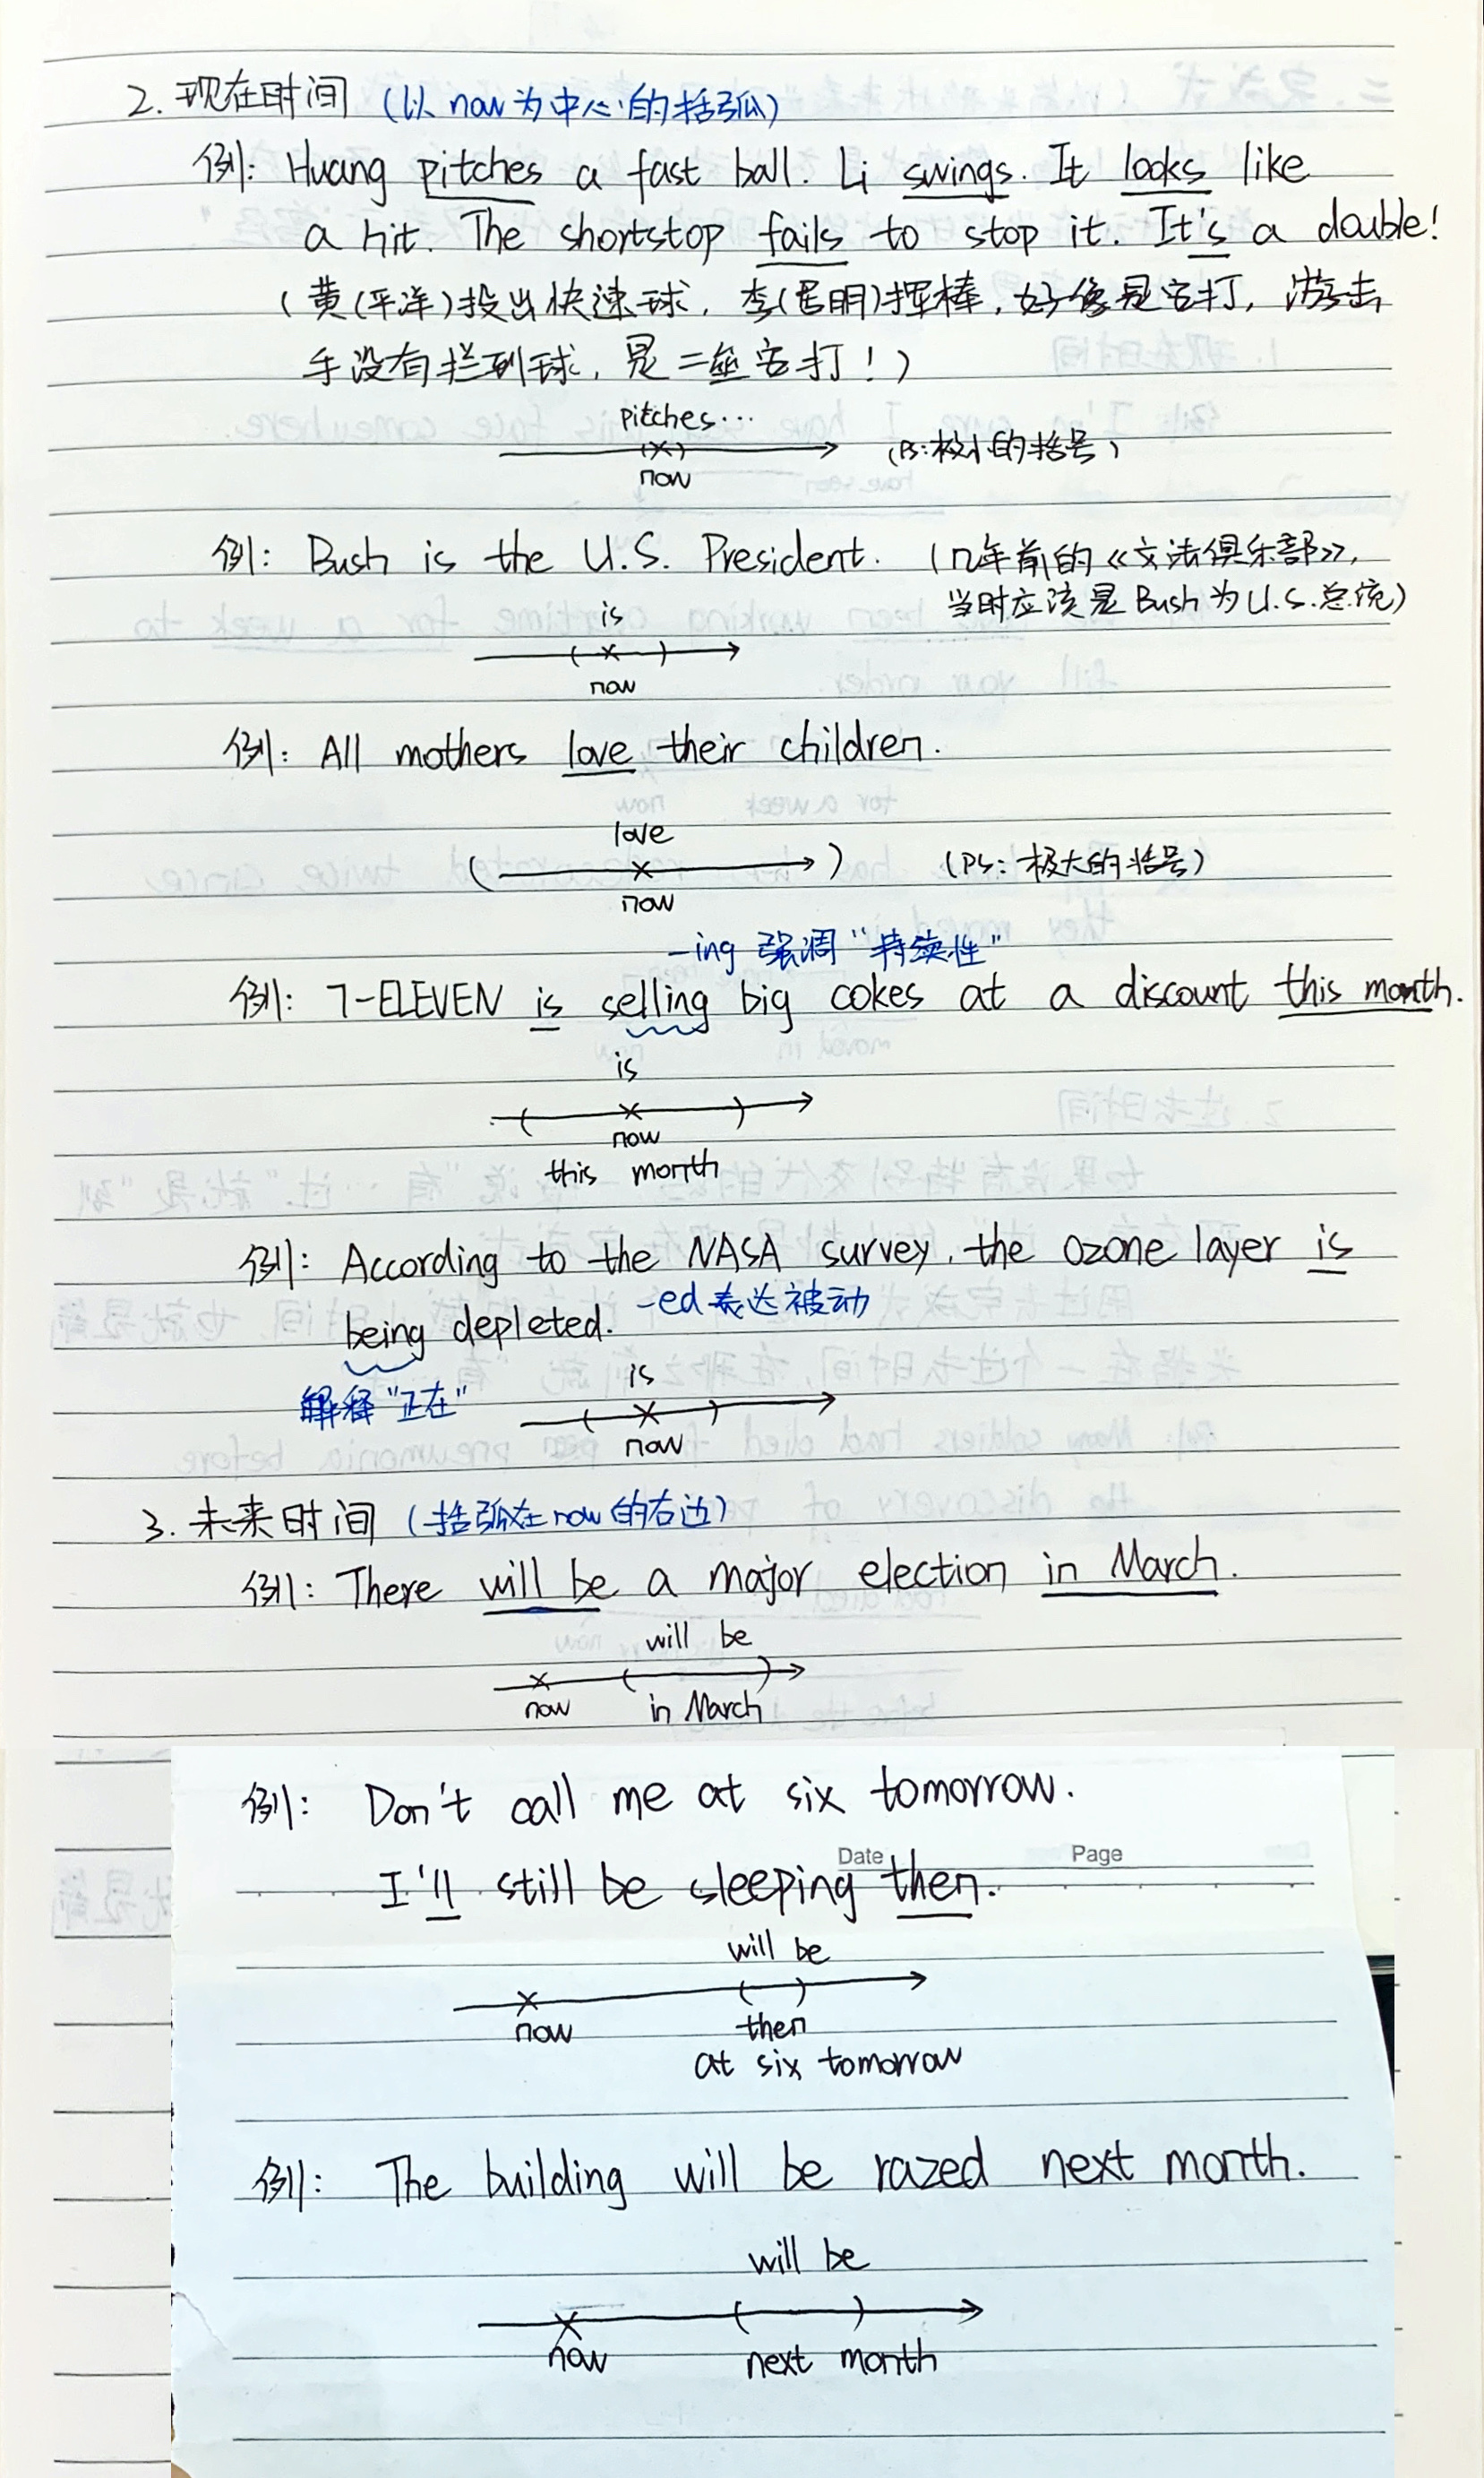 2. 现在时间 (以 now 为中心的括弧)
例: Huang pitches a fast ball. Li swings. It looks like
a hit. The shortstop fails to stop it. It's a double!
(黄(平洋)投出快速球, 李(居明)挥棒, 好像是安打, 游击
手没有拦到球, 是二垒安打!)
pitches...
(x) (PS: 极小的括号)
now
例: Bush is the U.S. President. (几年前的《文法俱乐部》,
当时应该是 Bush 为 U.S. 总统)
is
( x )
now
例: All mothers love their children.
love
( x ) (PS: 极大的括号)
now
-ing 强调 "持续性"
例: 7-ELEVEN is selling big cokes at a discount this month.
is
( x )
now
this month
例: According to the NASA survey, the ozone layer is
being depleted. -ed 表达被动
解释 "正在"
is
( x )
now
3. 未来时间 (括弧在 now 的右边)
例: There will be a major election in March.
will be
x ( )
now in March
例: Don't call me at six tomorrow.
Date Page
I'll still be sleeping then.
will be
x ( )
now then
at six tomorrow
例: The building will be razed next month.
will be
x ( )
now next month